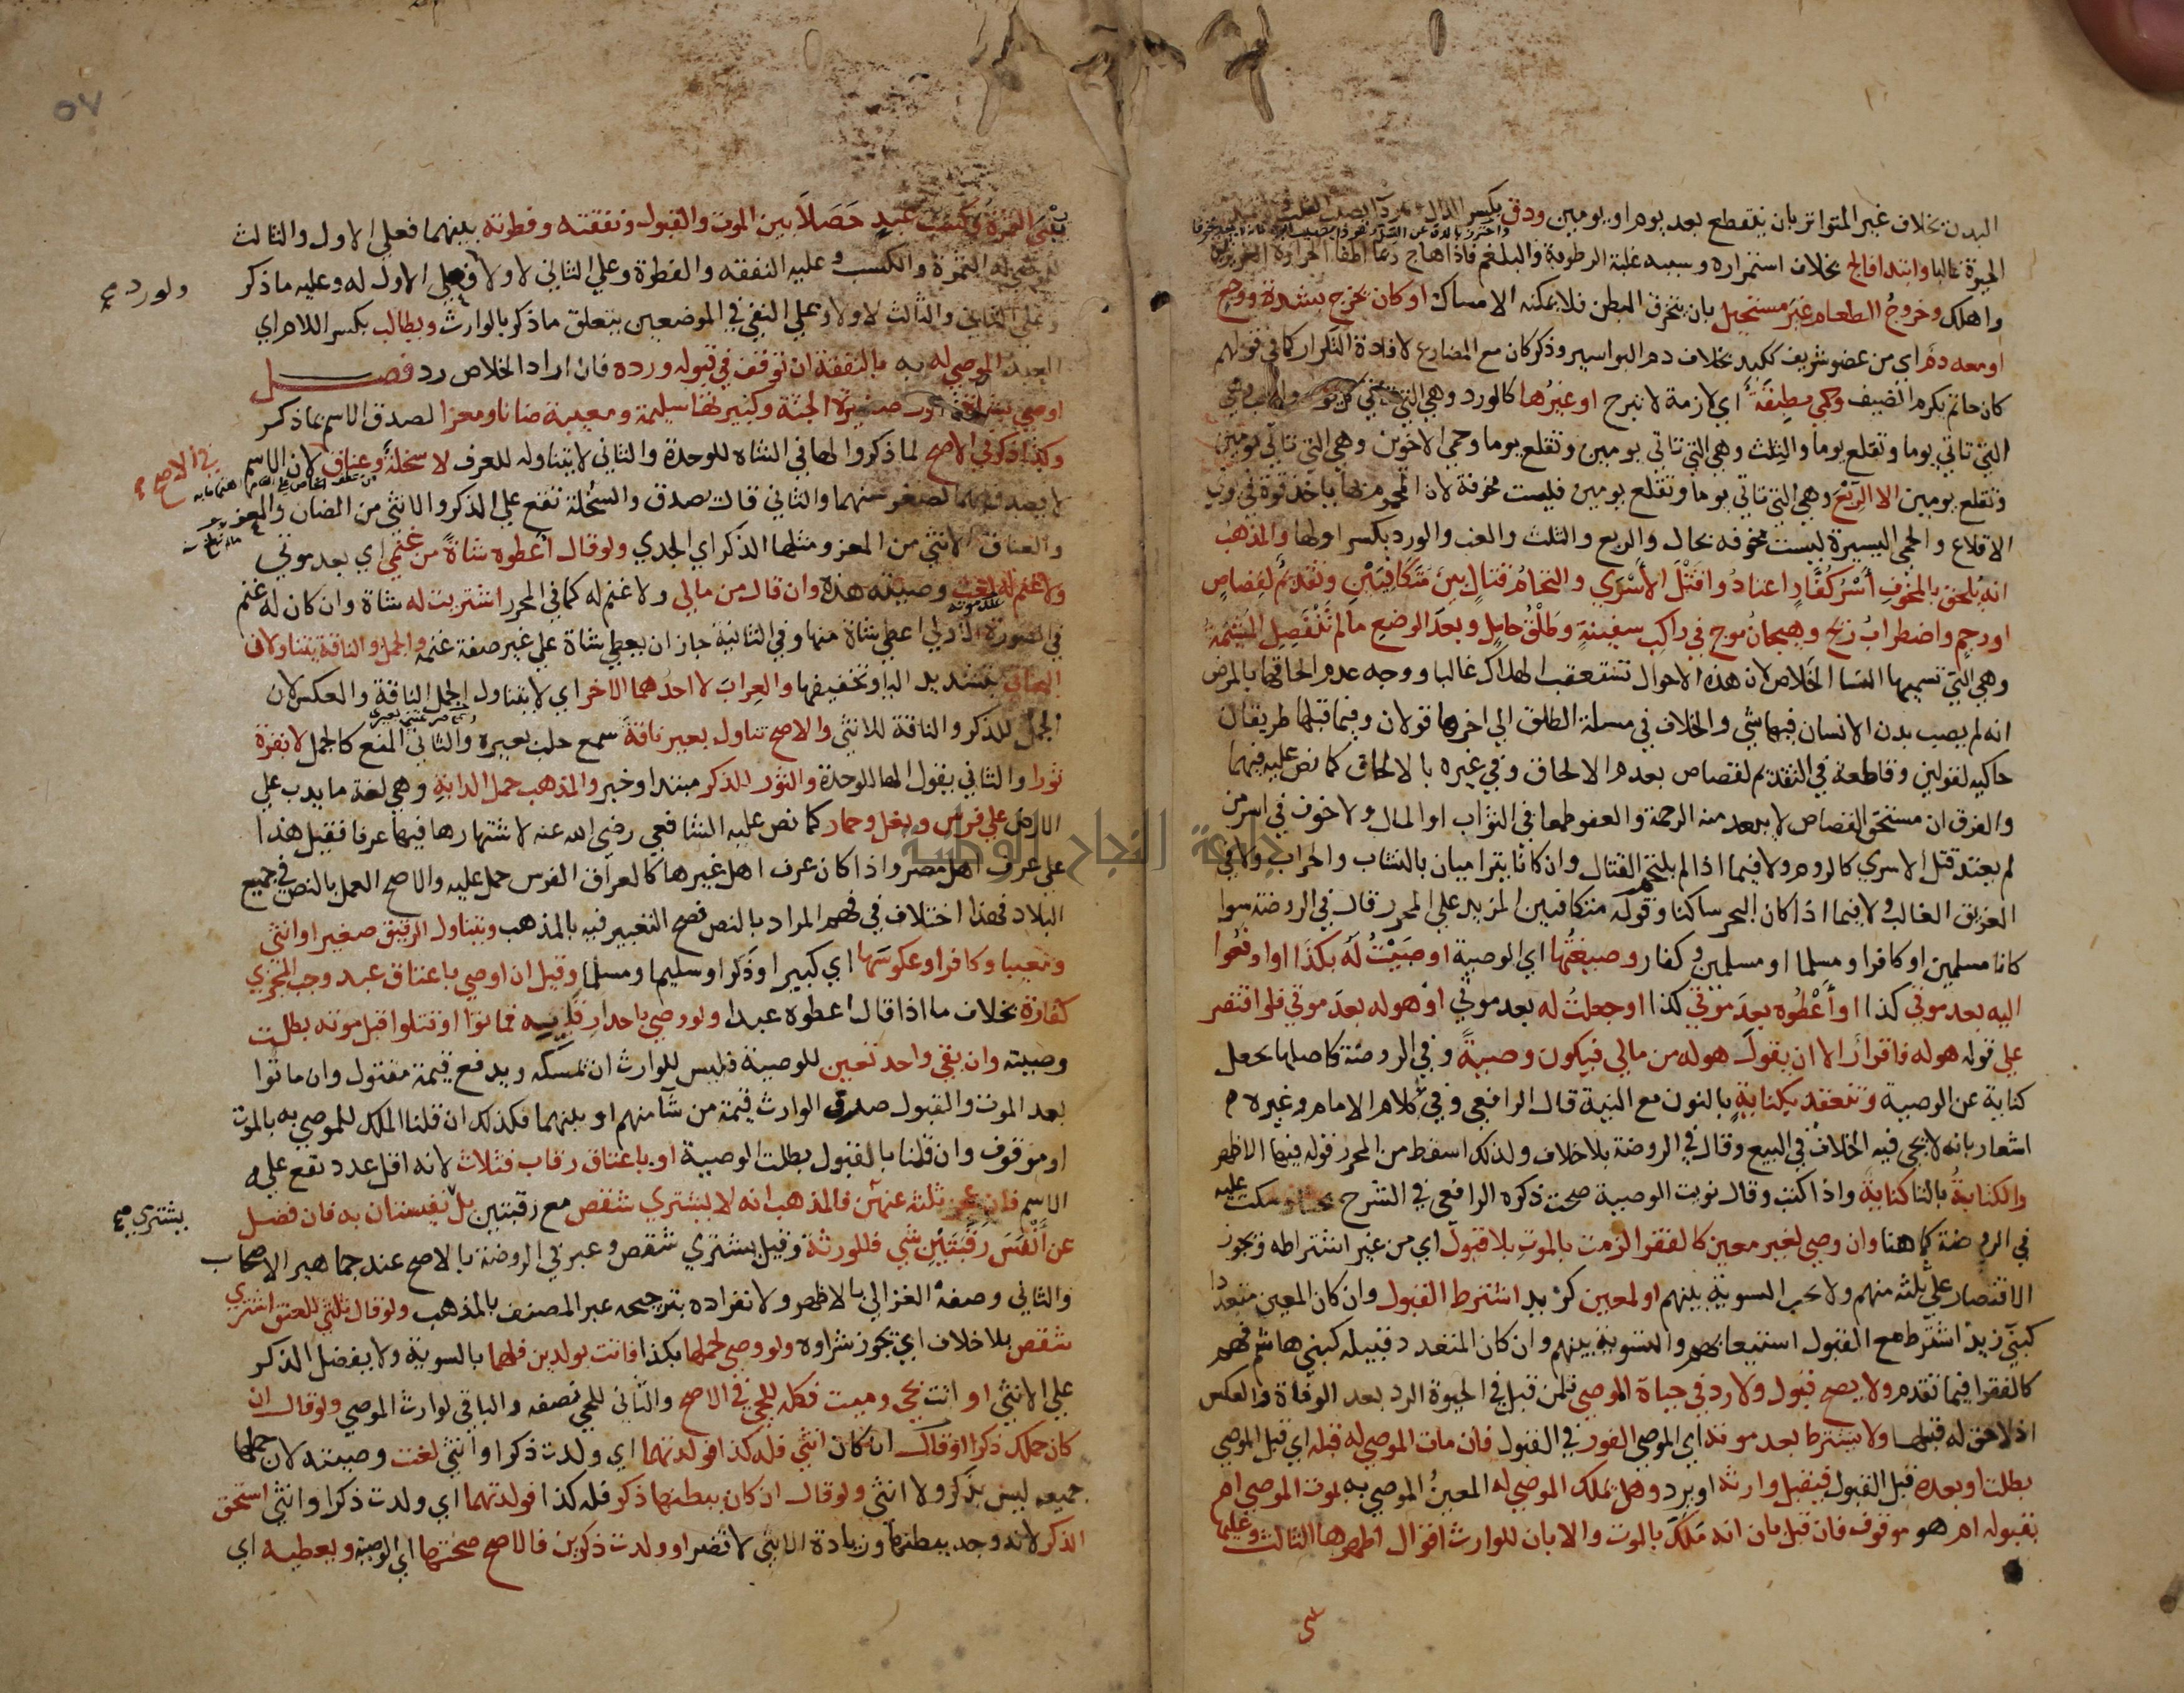 البدن بخلاف غير المتواتر بان ينقطع بعد يوم او يومين ودق بكسر الدال
الحيوة غالبا وابتدا فالج بخلاف استمراره وسببه غلبة الرطوبة والبلغم فاذا هاج ربما اطفا الحرارة الغريزية
واهلك وخروج الطعام غير مستحيل بان يتخرق البطن فلا يمكنه الامساك او كان يخرج بشدة ووجع
او معه دم اي من عضو شريف ككبد بخلاف دم البواسير وذكر كان مع المضارع لافادة التكرار كما في قولهم
كان حاتم يكرم الضيف وحمي مطبقة أي لازمة لا تبرح او غيرها كالورد وهي التي
التي تاتي يوما وتقلع يوما والثلث وهي التي تاتي يومين وتقلع يوما وحمي الاخوين وهي التي تاتي يومين
وتقلع يومين الا الربع وهي التي تاتي يوما وتقلع يومين فليست مخوفة لان المحموم بها ياخذ قوة في يومي
الاقلاع والحمي اليسيرة ليست مخوفة بحال والربع والثلث والغب والورد بكسر اولها والمذهب
انه يلحق بالمخوف أسر كفار اعتادوا قتل الأسري والتحام قتال بين متكافيين وتقديم لقصاص
او رجم واضطراب ريح وهيجان موج في راكب سفينة وطلق حامل وبعد الوضع ما لم تنفصل المشيمة
وهي التي تسميها النسا الخلاص لان هذه الاحوال تستعقب الهلاك غالبا ووجه عدم الحاقها بالمرض
انه لم يصب بدن الانسان فيها شي والخلاف في مسلة الطلق الي اخرها قولان وفيما قبلها طريقان
حاكية لقولين وقاطعة في التقديم لقصاص بعدم الالحاق وفي غيره بالالحاق كما نص عليه فيهما
والفرق ان مستحق القصاص لا يبعد منه الرحمة والعفو طمعا في الثواب او المال ولا خوف في اسر من
لم يعتد قتل الاسري كالروم ولا فيما اذا لم يلتحم القتال وان كانا يتراميان بالنشاب والحراب ولا في
الفريق الغالب ولا فيما اذا كان البحر ساكنا وقوله متكافيين المزيد علي المحرر قال في الروضة سوا
كانا مسلمين او كافرا ومسلما او مسلمين وكفار وصيغتها اي الوصية اوصيت له بكذا او ادفعوا
اليه بعد موتي كذا او أعطوه بعد موتي كذا او جعلت له بعد موتي او هو له بعد موتي فلو اقتصر
علي قوله هو له فاقرار الا ان يقول هو له من مالي فيكون وصية وفي الروضة كاصلها يجعل
كناية عن الوصية وتنعقد بكناية بالنون مع النية قال الرافعي وفي كلام الامام وغيره
اشعار بانه لا يجي فيه الخلاف في البيع وقال في الروضة بلا خلاف ولذلك اسقط من المحرر قوله فيها الاظهر
والكتابة بالتا كناية واذا كتب وقال نويت الوصية صحت ذكره الرافعي في الشرح بحثا وسكت عليه
في الروضة كما هنا وان وصي لغير معين كالفقرا لزمت بالموت بلا قبول اي من غير اشتراطه ويجوز
الاقتصار علي ثلثة منهم ولا يجب التسوية بينهم او لمعين كزيد اشترط القبول وان كان المعين متعددا
كبني زيد اشترط مع القبول استيعابهم والتسوية بينهم وان كان المتعدد قبيلة كبني هاشم فهم
كالفقرا فيما تقدم ولا يصح قبول ولا رد في حياة الموصي فلمن قبل في الحيوة الرد بعد الوفاة وبالعكس
اذ لا حق له قبلها ولا يشترط بعد موته أي الموصي الفور في القبول فان مات الموصي له قبله اي قبل الموصي
بطلت او بعده قبل القبول فيقبل وارثه او يرد وهل يملك الموصي له المعين الموصي به بموت الموصي ام
بقبوله ام هو موقوف فان قبل بان انه ملك بالموت والا بان للوارث اقوال اظهرها الثالث وعليها
يبنى الثمرة وكسب عبد حصلا بين الموت والقبول ونفقته وفطرته بينهما فعلي الاول والثالث
للموصي له الثمرة والكسب وعليه النفقة والفطرة وعلي الثاني لا ولا فعلي الاول له وعليه ما ذكر
ولو رد صح
وعلي الثاني والثالث لا ولا وعلي النفي في الموضعين يتعلق ما ذكر بالوارث ويطالب بكسر اللام اي
العبد الموصي له به بالنفقة ان توقف في قبوله ورده فان اراد الخلاص رد فصل
اوصي بشاة تناول صغيرة الجثة وكبيرتها سليمة ومعيبة ضانا ومعزا لصدق الاسم بما ذكر
وكذا ذكر في الاصح لما ذكروا لها في الشاه للوحدة والثاني لا يتناوله للعرف لا سخلة وعناق لان الاسم
في الاصح
لا يصدق بهما لصغر سنهما والثاني قال يصدق والسخلة تقع علي الذكر والانثي من الضان والمعز
والعناق الانثي من المعز ومثلها الذكر اي الجدي ولو قال أعطوه شاة من غنمي اي بعد موتي
ولا غنم له لغت وصيته هذه وان قال من مالي ولا غنم له كما في المحرر اشتريت له شاة وان كان له غنم
في الصورة الاولي اعطي شاة منها وفي الثانية جاز ان يعطي شاة علي غير صفة غنمه والجمل والناقة يتناولان
البخاتي بتشديد اليا وتخفيفها والعراب لا احدهما الاخر اي لا يتناول الجمل الناقة والعكس لان
الجمل للذكر والناقة للانثي والاصح تناول بعير ناقة سمع حلب بعيره والثاني المنع كالجمل لا بقرة
ثورا والثاني يقول الها للوحدة والثور للذكر مبتدا وخبر والمذهب حمل الدابة وهي لغة ما يدب علي
الارض علي فرس وبغل وحمار كما نص عليه الشافعي رضي الله عنه لاشتهارها فيها عرفا فقيل هذا
علي عرف اهل مصر واذا كان عرف اهل غيرها كالعراق الفرس حمل عليه والاصح العمل بالنص في جميع
البلاد فهذا اختلاف في فهم المراد بالنص فصح التعبير فيه بالمذهب ويتناول الرقيق صغيرا وانثي
ومعيبا وكافرا وعكوسها اي كبيرا وذكرا وسليما ومسلما وقيل ان اوصي باعتاق عبد وجب المجزي
كفارة بخلاف ما اذا قال اعطوه عبدا ولو وصي باحد ارقايه فماتوا او قتلوا قبل موته بطلت
وصيته وان بقي واحد تعين للوصية فليس للوارث ان يمسكه ويدفع قيمة مقتول وان ماتوا
بعد الموت والقبول صدق الوارث قيمة من شآ منهم او بينهما فكذلك ان قلنا الملك للموصي به بالموت
او موقوف وان قلنا بالقبول بطلت الوصية او باعتاق رقاب فثلاث لانه اقل عدد تقع عليه
الاسم فان عجز ثلثه عنهن فالمذهب انه لا يشتري شقص مع رقبتين بل نفيستان به فان فضل
يشتري صح
عن أنفس رقبتين شي فللورثة وقيل يشتري شقص وعبر في الروضة بالاصح عند جماهير الاصحاب
والثاني وصفه الغزالي بالاظهر ولانفراده بترجيحه عبر المصنف بالمذهب ولو قال ثلثي للعتق اشتري
شقص بلا خلاف اي يجوز شراوه ولو وصي لحملها بكذا فاتت بولدين فلهما بالسوية ولا يفضل الذكر
علي الانثي او اتت بحي وميت فكله للحي في الاصح والثاني للحي نصفه والباقي لوارث الموصي ولو قال ان
كان حملك ذكرا او قال ان كان انثي فله كذا فولدتهما اي ولدت ذكرا وانثي لغت وصيته لان حملها
جميعه ليس بذكر ولا انثي ولو قال ان كان ببطنها ذكر فله كذا فولدتهما اي ولدت ذكرا وانثي استحق
الذكر لانه وجد ببطنها وزيادة الانثي لا تضر او ولدت ذكرين فالاصح صحتها اي الوصية ويعطيه اي
جامعة النجاح الوطنية